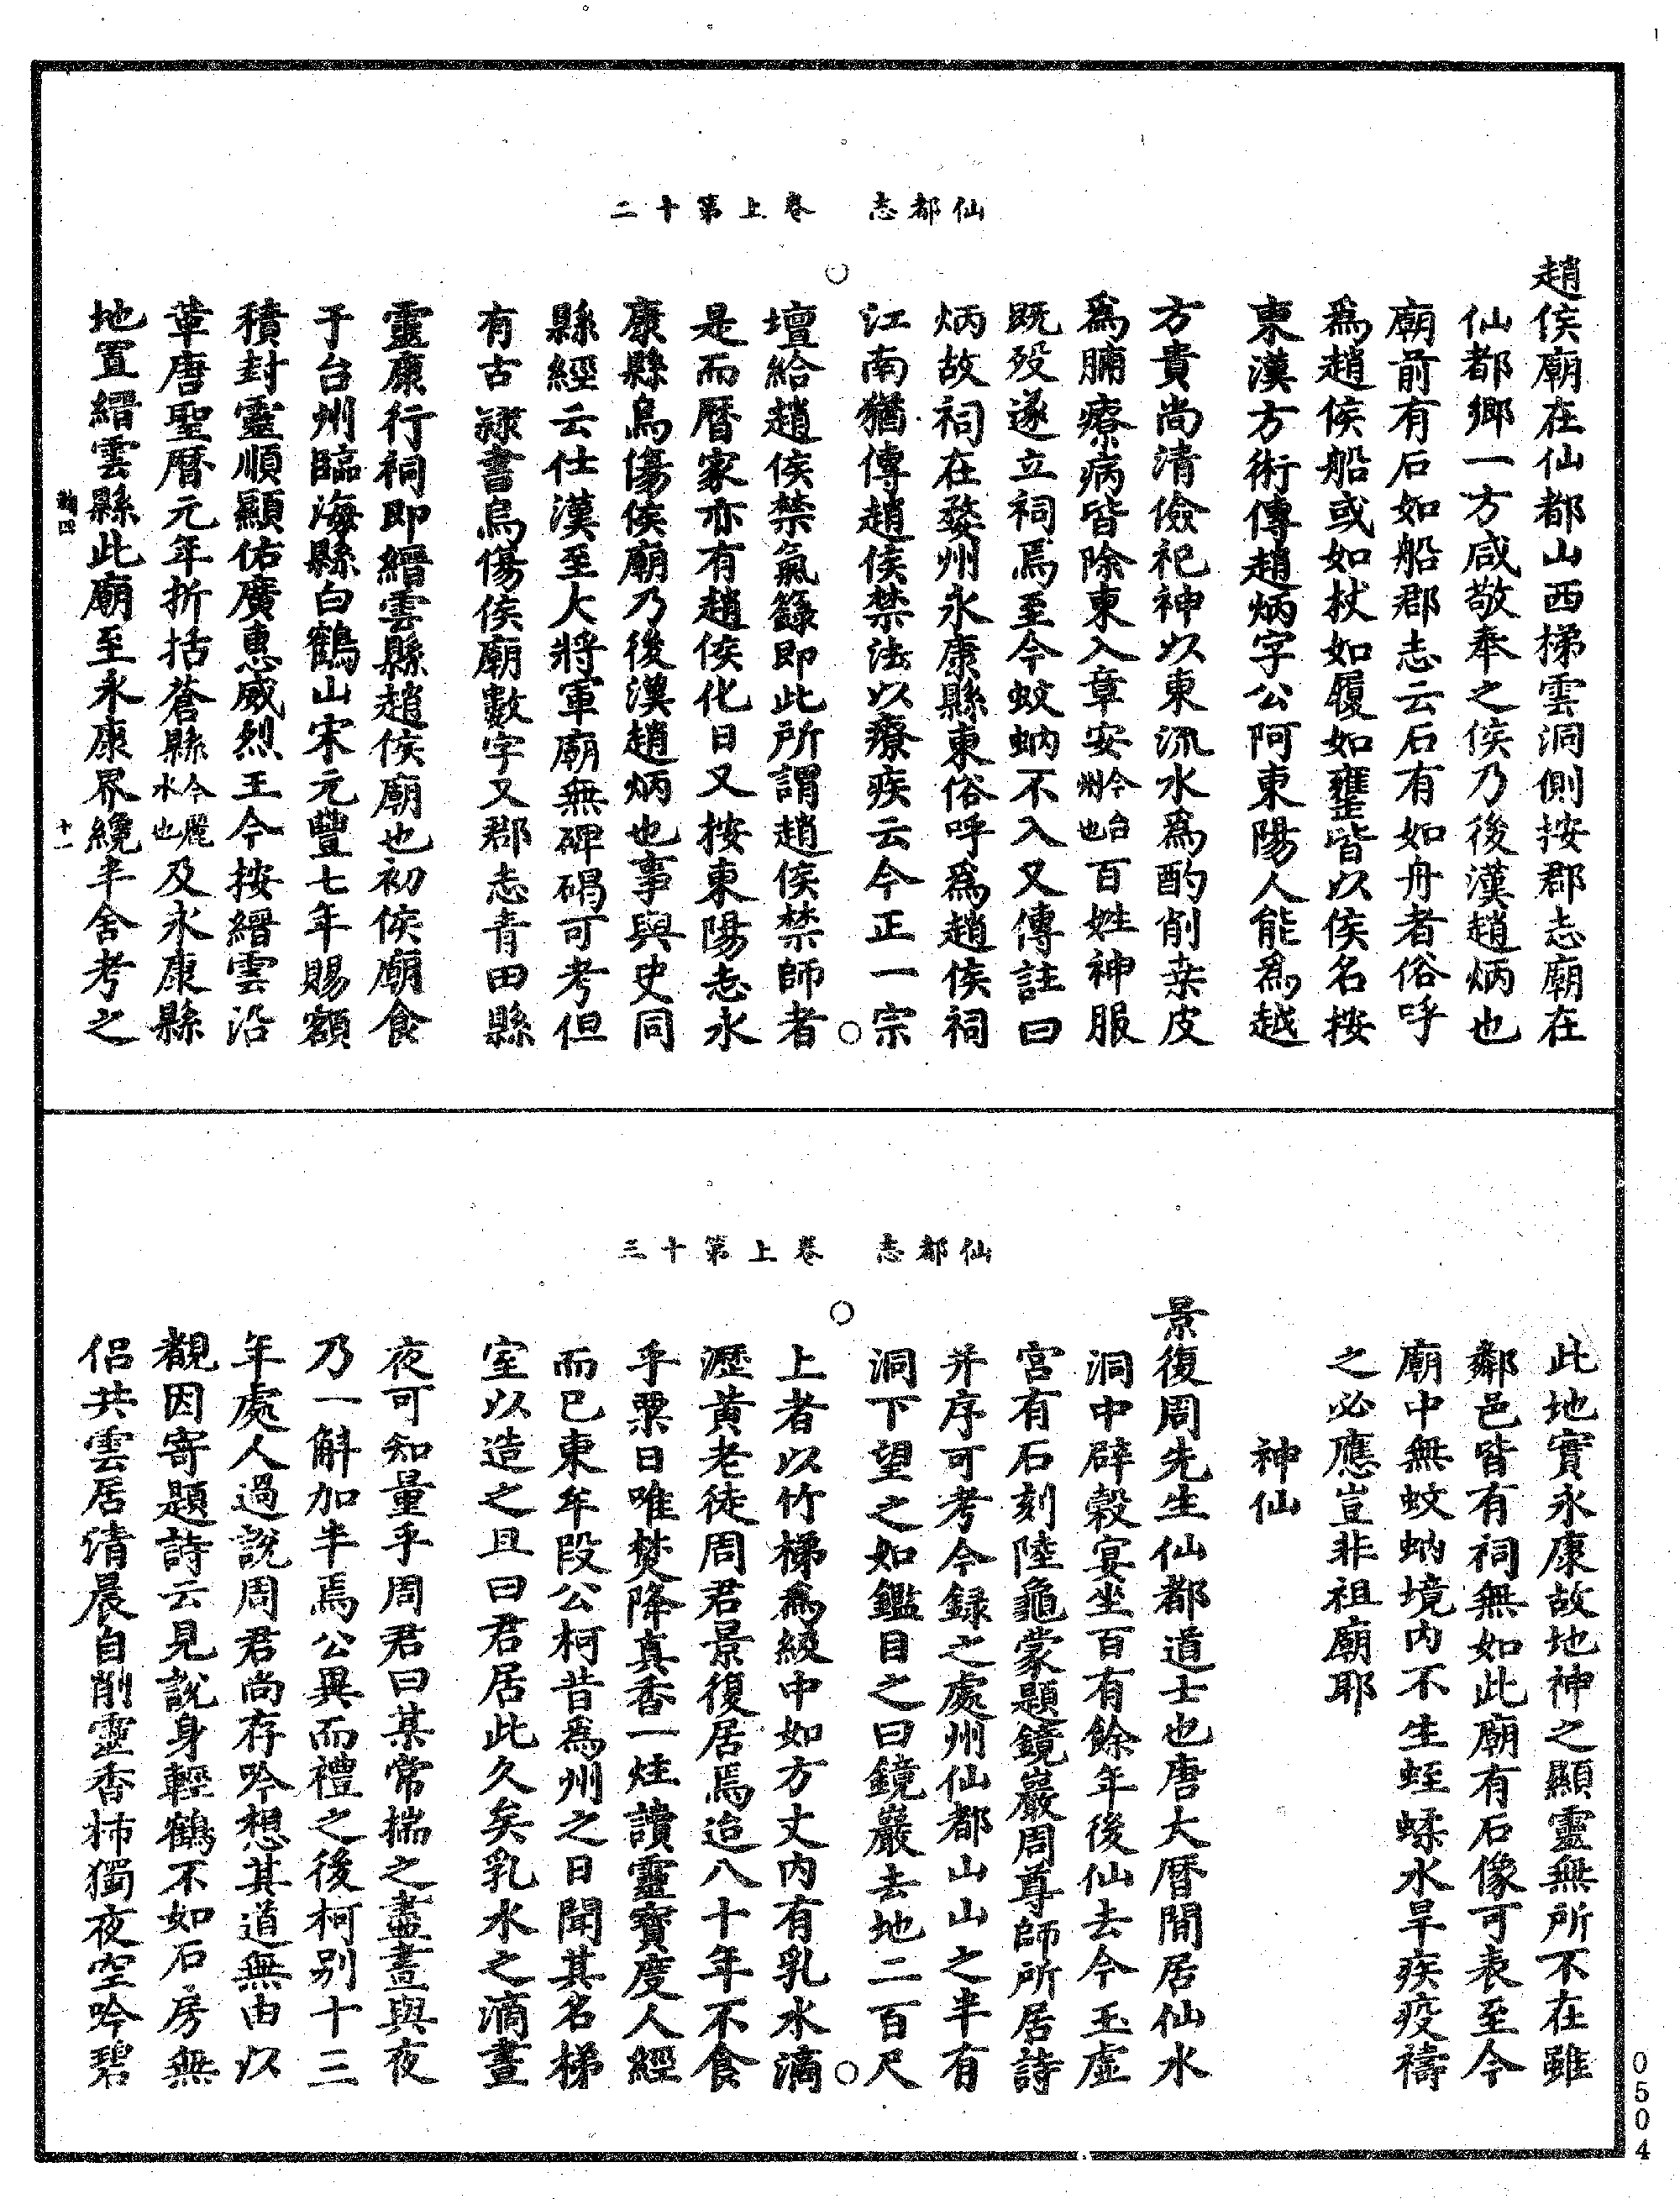 仙都志　卷上第十二
趙侯廟在仙都山西梯雲洞側按郡志廟在
仙都鄉一方咸敬奉之侯乃後漢趙炳也
廟前有石如船郡志云石有如舟者俗呼
爲趙侯船或如杖如履如甕皆以侯名按
東漢方術傳趙炳字公阿東陽人能爲越
方貴尚清儉祀神以東流水爲酌削桒皮
爲脯療病皆除東入章安今台州也百姓神服
既歿遂立祠焉至今蚊蚋不入又傳註曰
炳故祠在婺州永康縣東俗呼爲趙侯祠
江南猶傳趙侯禁法以療疾云今正一宗
壇給趙侯禁氣籙即此所謂趙侯禁師者
是而曆家亦有趙侯化日又按東陽志永
康縣烏傷侯廟乃後漢趙炳也事與史同
縣經云仕漢至大將軍廟無碑碣可考但
有古隸書烏傷侯廟數字又郡志青田縣
靈康行祠即縉雲縣趙侯廟也初侯廟食
于台州臨海縣白鶴山宋元豐七年賜額
積封靈順顯佑廣惠威烈王今按縉雲沿
革唐聖曆元年折括蒼縣今麗水也及永康縣
地置縉雲縣此廟至永康界纔半舍考之
十一
仙都志　卷上第十三
此地實永康故地神之顯靈無所不在雖
鄰邑皆有祠無如此廟有石像可表至今
廟中無蚊蚋境內不生蛭蝚水旱疾疫禱
之必應豈非祖廟耶
神仙
景復周先生仙都道士也唐大曆間居仙水
洞中辟穀宴坐百有餘年後仙去今玉虛
宮有石刻陸龜蒙題鏡巖周尊師所居詩
并序可考今錄之處州仙都山山之半有
洞下望之如鑑目之曰鏡巖去地二百尺
上者以竹梯爲級中如方丈內有乳水滴
瀝黃老徒周君景復居焉迨八十年不食
乎粟日唯焚降真香一炷讀靈寶度人經
而已東牟段公柯昔爲州之日聞其名梯
室以造之且曰君居此久矣乳水之滴晝
夜可知量乎周君曰某常揣之盡晝與夜
乃一斛加半焉公異而禮之後柯别十三
年處人過說周君尚存吟想其道無由以
覯因寄題詩云見說身輕鶴不如石房無
侶共雲居清晨自削靈香柿獨夜空吟碧
0504